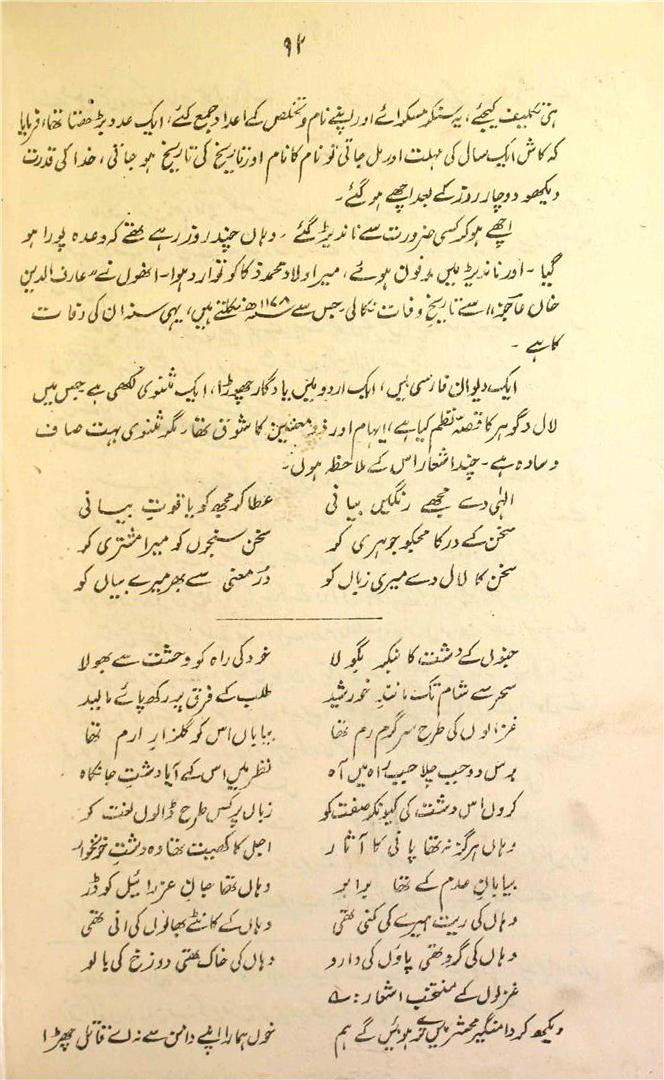 ۹۲
ہی تکلیف کیجیے، یہ سنکر مسکرائے اور اپنے نام و تخلص کے اعداد جمع کئے، ایک عدد بڑھتا تھا، فرمایا
کہ کاش ایک سال کی مہلت اور مل جاتی تو نام کا نام اور تاریخ کی تاریخ ہو جاتی، خدا کی قدرت
دیکھو دو چار روز کے بعد اچھے ہو گئے۔
اچھے ہو کر کسی ضرورت سے ناندیڑ گئے۔ وہاں چند روز رہے تھے کہ وعدہ پورا ہو
گیا۔ اور ناندیڑ میں مدفون ہوئے، میر اولاد محمد ذکا کو توارد ہوا۔ انھوں نے "عارف الدین
خاں عاجز" سے تاریخ وفات نکالی جس سے ۱۱۷۸ھ نکلتے ہیں، یہی سنہ ان کی وفات
کا ہے۔
ایک دیوان فارسی میں، ایک اردو میں یادگار چھوڑا، ایک مثنوی لکھی ہے جس میں
لال و گوہر کا قصہ نظم کیا ہے، ایہام اور ذو معنیین کا شوق تھا۔ مگر مثنوی بہت صاف
و سادہ ہے۔ چند اشعار اس کے ملاحظہ ہوں۔
الٰہی دے مجھے رنگیں بیانی عطا کر مجھ کو یاقوتِ بیانی
سخن کے در کا مجکو جوہری کر سخن سنجوں کو میرا مشتری کر
سخن کا لال دے میری زباں کو در معنی سے بھر میرے بیاں کو
جنوں کے دشت کا بنکر بگولا خرد کی راہ کو وحشت سے بھولا
سحر سے شام تک مانند خورشید طلب کے فرق پر رکھ پائے مالید
غزالوں کی طرح سرگرم رم تھا بیاباں اس کو گلزار ارم تھا
برس دو جب چلا جب راہ میں آہ نظر میں اس کے آیا دشت جانکاہ
کروں اس دشت کی کیونکر صفت کو زباں پر کس طرح ڈالوں لغت کو
وہاں ہرگز نہ تھا پانی کا آثار اجل کا کھیت تھا وہ دشت خونخوار
بیابان عدم کے تھا برابر وہاں تھا جان عزرائیل کو ڈر
وہاں کی ریت ہیرے کی کنی تھی وہاں کے کانٹے بھالوں کی انی تھی
وہاں کی گرد تھی پاؤں کی دارو وہاں کی خاک تھی دوزخ کی بالو
غزلوں کے منتخب اشعار:۔
دیکھ کر دامنگیر محشر میں ترے ہوئیں گے ہم خوں ہمارا اپنے دامن سے نہ اے قاتل چھڑا